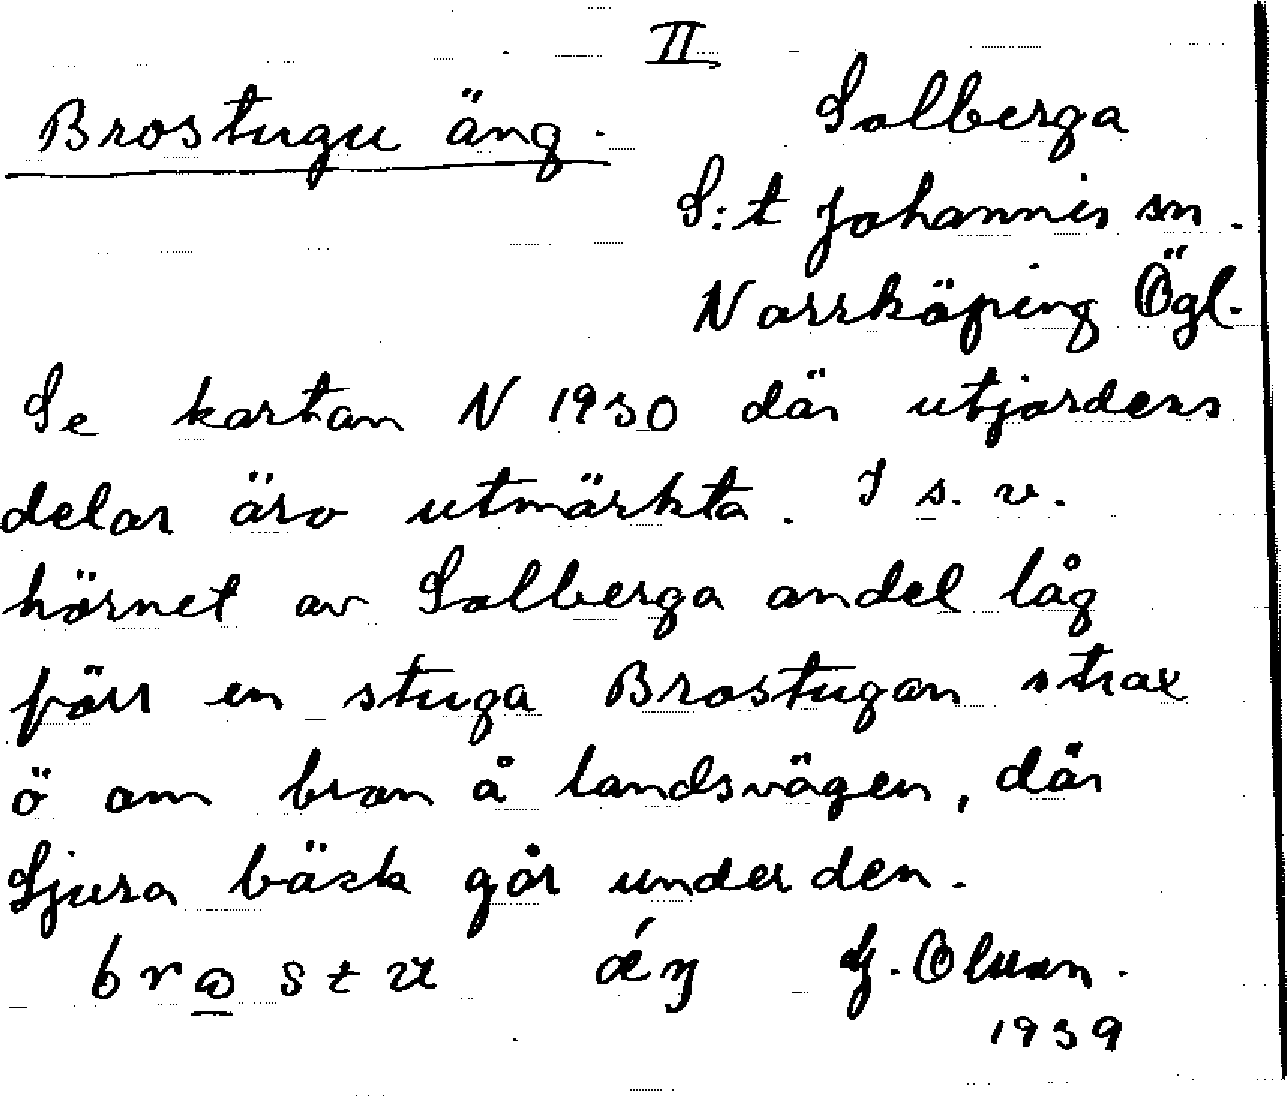 II
Brostugu äng.
Solberga
S:t Johannis sn.
Norrköping Ögl.
Se kartan N 1930 där utjordens
delar äro utmärkta. I s.v.
hörnet av Solberga andel låg
förr en stuga Brostugan strax
ö om bron å landsvägen, där
Sjura bäck går under den.
G. Olsson.
1939